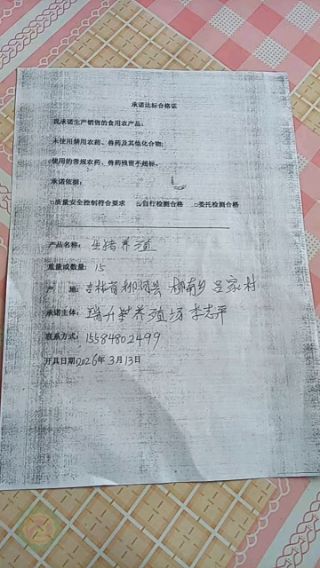 承诺达标合格证
我承诺生产销售的食用农产品：
未使用禁用农药、兽药及其他化合物；
使用的常规农药、兽药残留不超标。
承诺依据：
□质量安全控制符合要求 ☑自行检测合格 □委托检测合格
产品名称：生猪养殖
重量或数量：15
产 地：吉林省柳河县 柳南乡 吕家村
承诺主体：瑞升紫养殖场 李志平
联系方式：15584802499
开具日期2026年3月13日